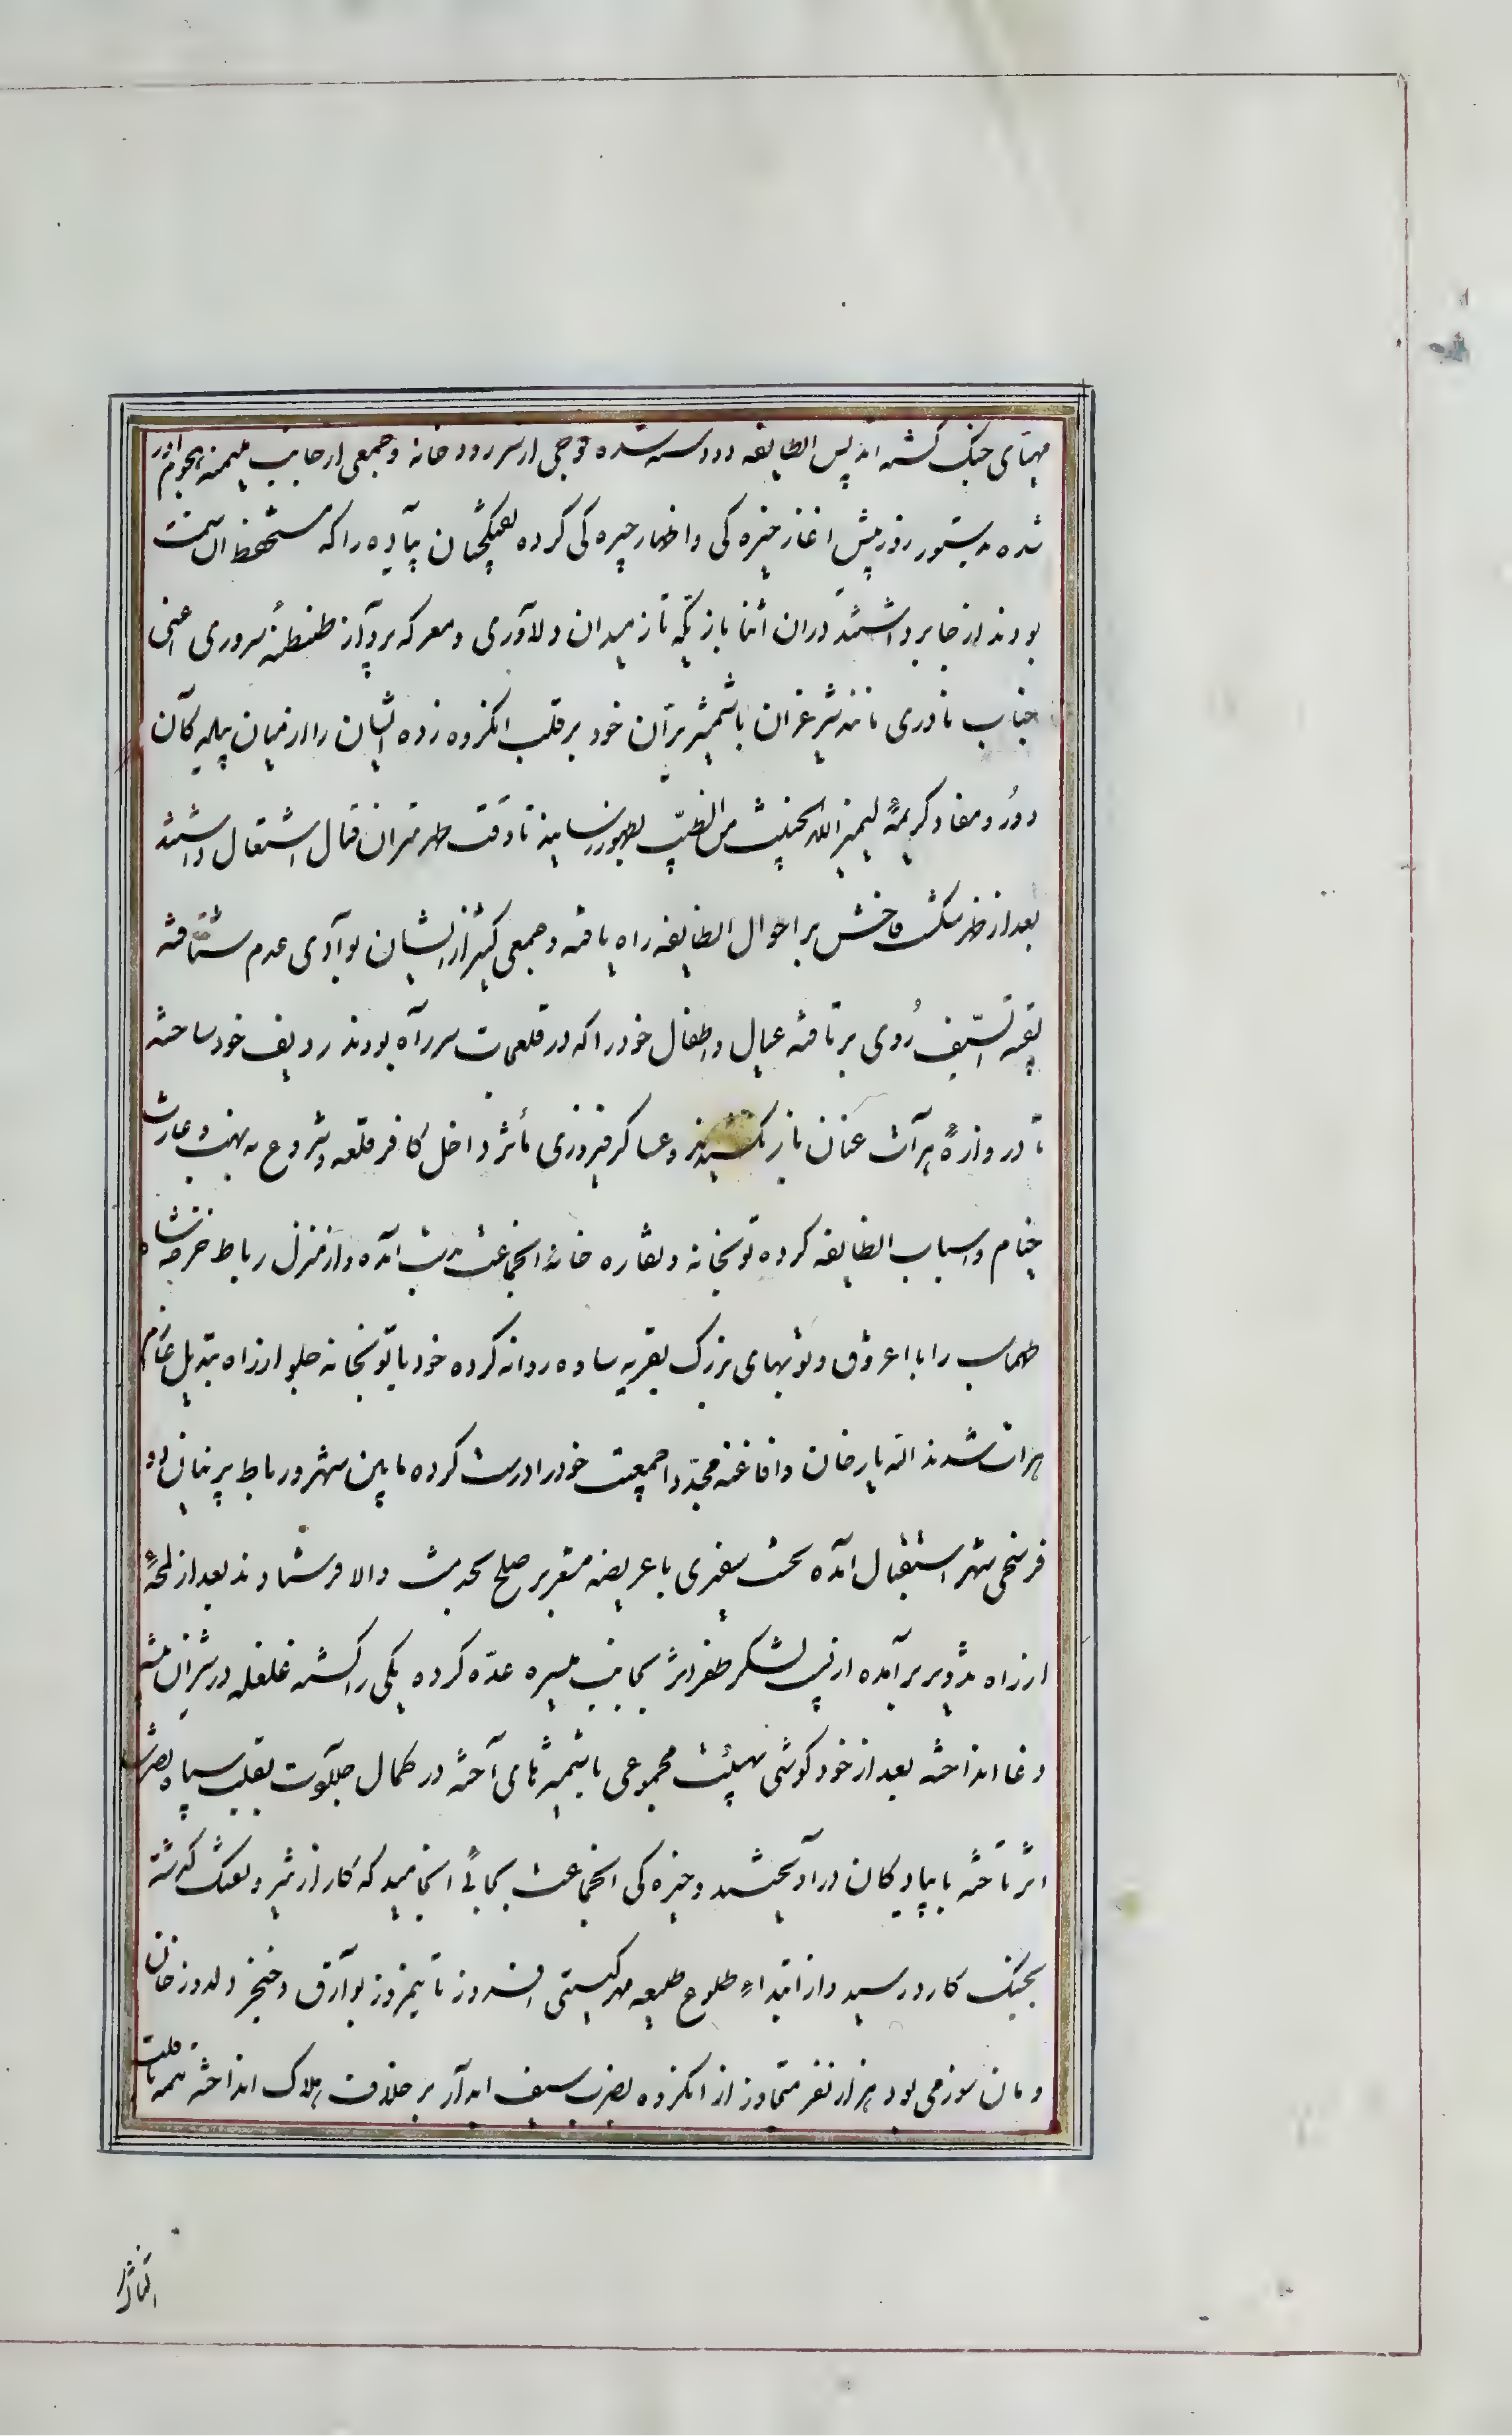 مهیّای جنک کشته اند پس انطایفه دو دسته شده فوجی از سر رودخانه و جمعی از جانب میمنه هجوم آور
شده بدستور روز پیش آغاز خیره کی و اظهار چیره کی کرده تفنکچیان پیاده را که مستحفظ ان سمت
بودند از جا برداشتند دران اثنا باز یکه تاز میدان دلاوری و معرکه پرداز طنطنهٔ سروری اعنی
جناب نادری مانند شیر غران با شمشیر بران خود بر قلب انکروه زده ایشان را از میان پیاده کان
دور و مفاد کریمهٔ لیمیز الله الخبیث من الطیّب بظهور رسانید تا وقت ظهر نیران قتال اشتعال داشتند
بعد از ظهر شکست فاحش بر احوال انطایفه راه یافته و جمعی کثیر از ایشان بوادی عدم شتافته
بقیه السّیف روی برتافته عیال و اطفال خود را که در قلعجات سر راه بودند ردیف خود ساخته
تا دروازهٔ هرات عنان باز نکشیدند و عساکر فیروزی مآثر داخل کافر قلعه و شروع به نهب و غارت
خیام و اسباب انطایفه کرده توپخانه و نقاره خانهٔ انجماعت بدست آمده و از منزل رباط خرجه شاه
طهماسب را با اغروق و توپهای بزرک بقریه ساده روانه کرده خود با توپخانه جلو از راه تبدیل عازم
هرات شدند اله یار خان و افاغنه مجدّدا جمعیت خود را درست کرده ما بین شهر و رباط پریان دو
فرسخی شهر استقبال آمده نخست سفیری با عریضه متقریر صلح بخدمت والا فرستادند بعد از لمحهٔ
از راه تذویر برآمده از پس لشکر ظفر اثر بجانب میسره عدّه کرده یکی را کشته غلغله در شیران بیشه
وغا انداخته بعد از خودکوشی بهیئت مجموعی با شمشیرهای آخته در کمال جلادت بقلب سپاه نصرت
اثر تاخته با پیادکان درآویختند و خیره کی انجماعت بجائی انجامید که کار از تیر و تفنک کذشته
بجنک کارد رسید و از ابتداء طلوع طلیعه مهر کیتی افروز تا نیمروز بوارق و خنجر دلدوز خان
ومان سوز می بود هزار نفر متجاوز از انکروه بضرب سیف آبدار بر خاک هلاک انداخته تتمه تاب